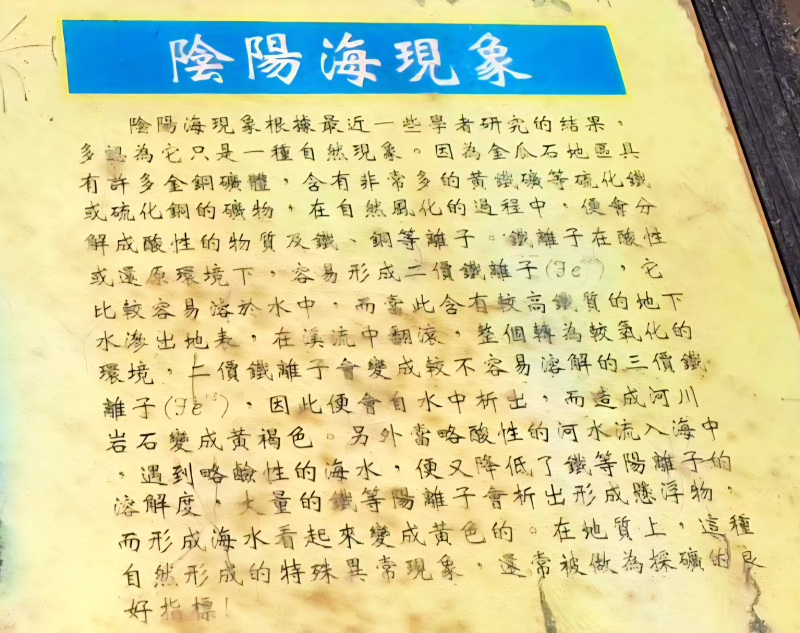 陰陽海現象
陰陽海現象根據最近一些學者研究的結果，
多認為它只是一種自然現象。因為金瓜石地區具
有許多金銅礦體，含有非常多的黃鐵礦等硫化鐵
或硫化銅的礦物，在自然風化的過程中，便會分
解成酸性的物質及鐵、銅等離子。鐵離子在酸性
或還原環境下，容易形成二價鐵離子(Fe⁺²)，它
比較容易溶於水中，而當此含有較高鐵質的地下
水滲出地表，在溪流中翻滾，整個轉為較氧化的
環境，二價鐵離子會變成較不容易溶解的三價鐵
離子(Fe⁺³)，因此便會自水中析出，而造成河川
岩石變成黃褐色。另外當略酸性的河水流入海中
，遇到略鹼性的海水，便又降低了鐵等陽離子的
溶解度，大量的鐵等陽離子會析出形成懸浮物，
而形成海水看起來變成黃色的。在地質上，這種
自然形成的特殊異常現象，還常被做為採礦的良
好指標!